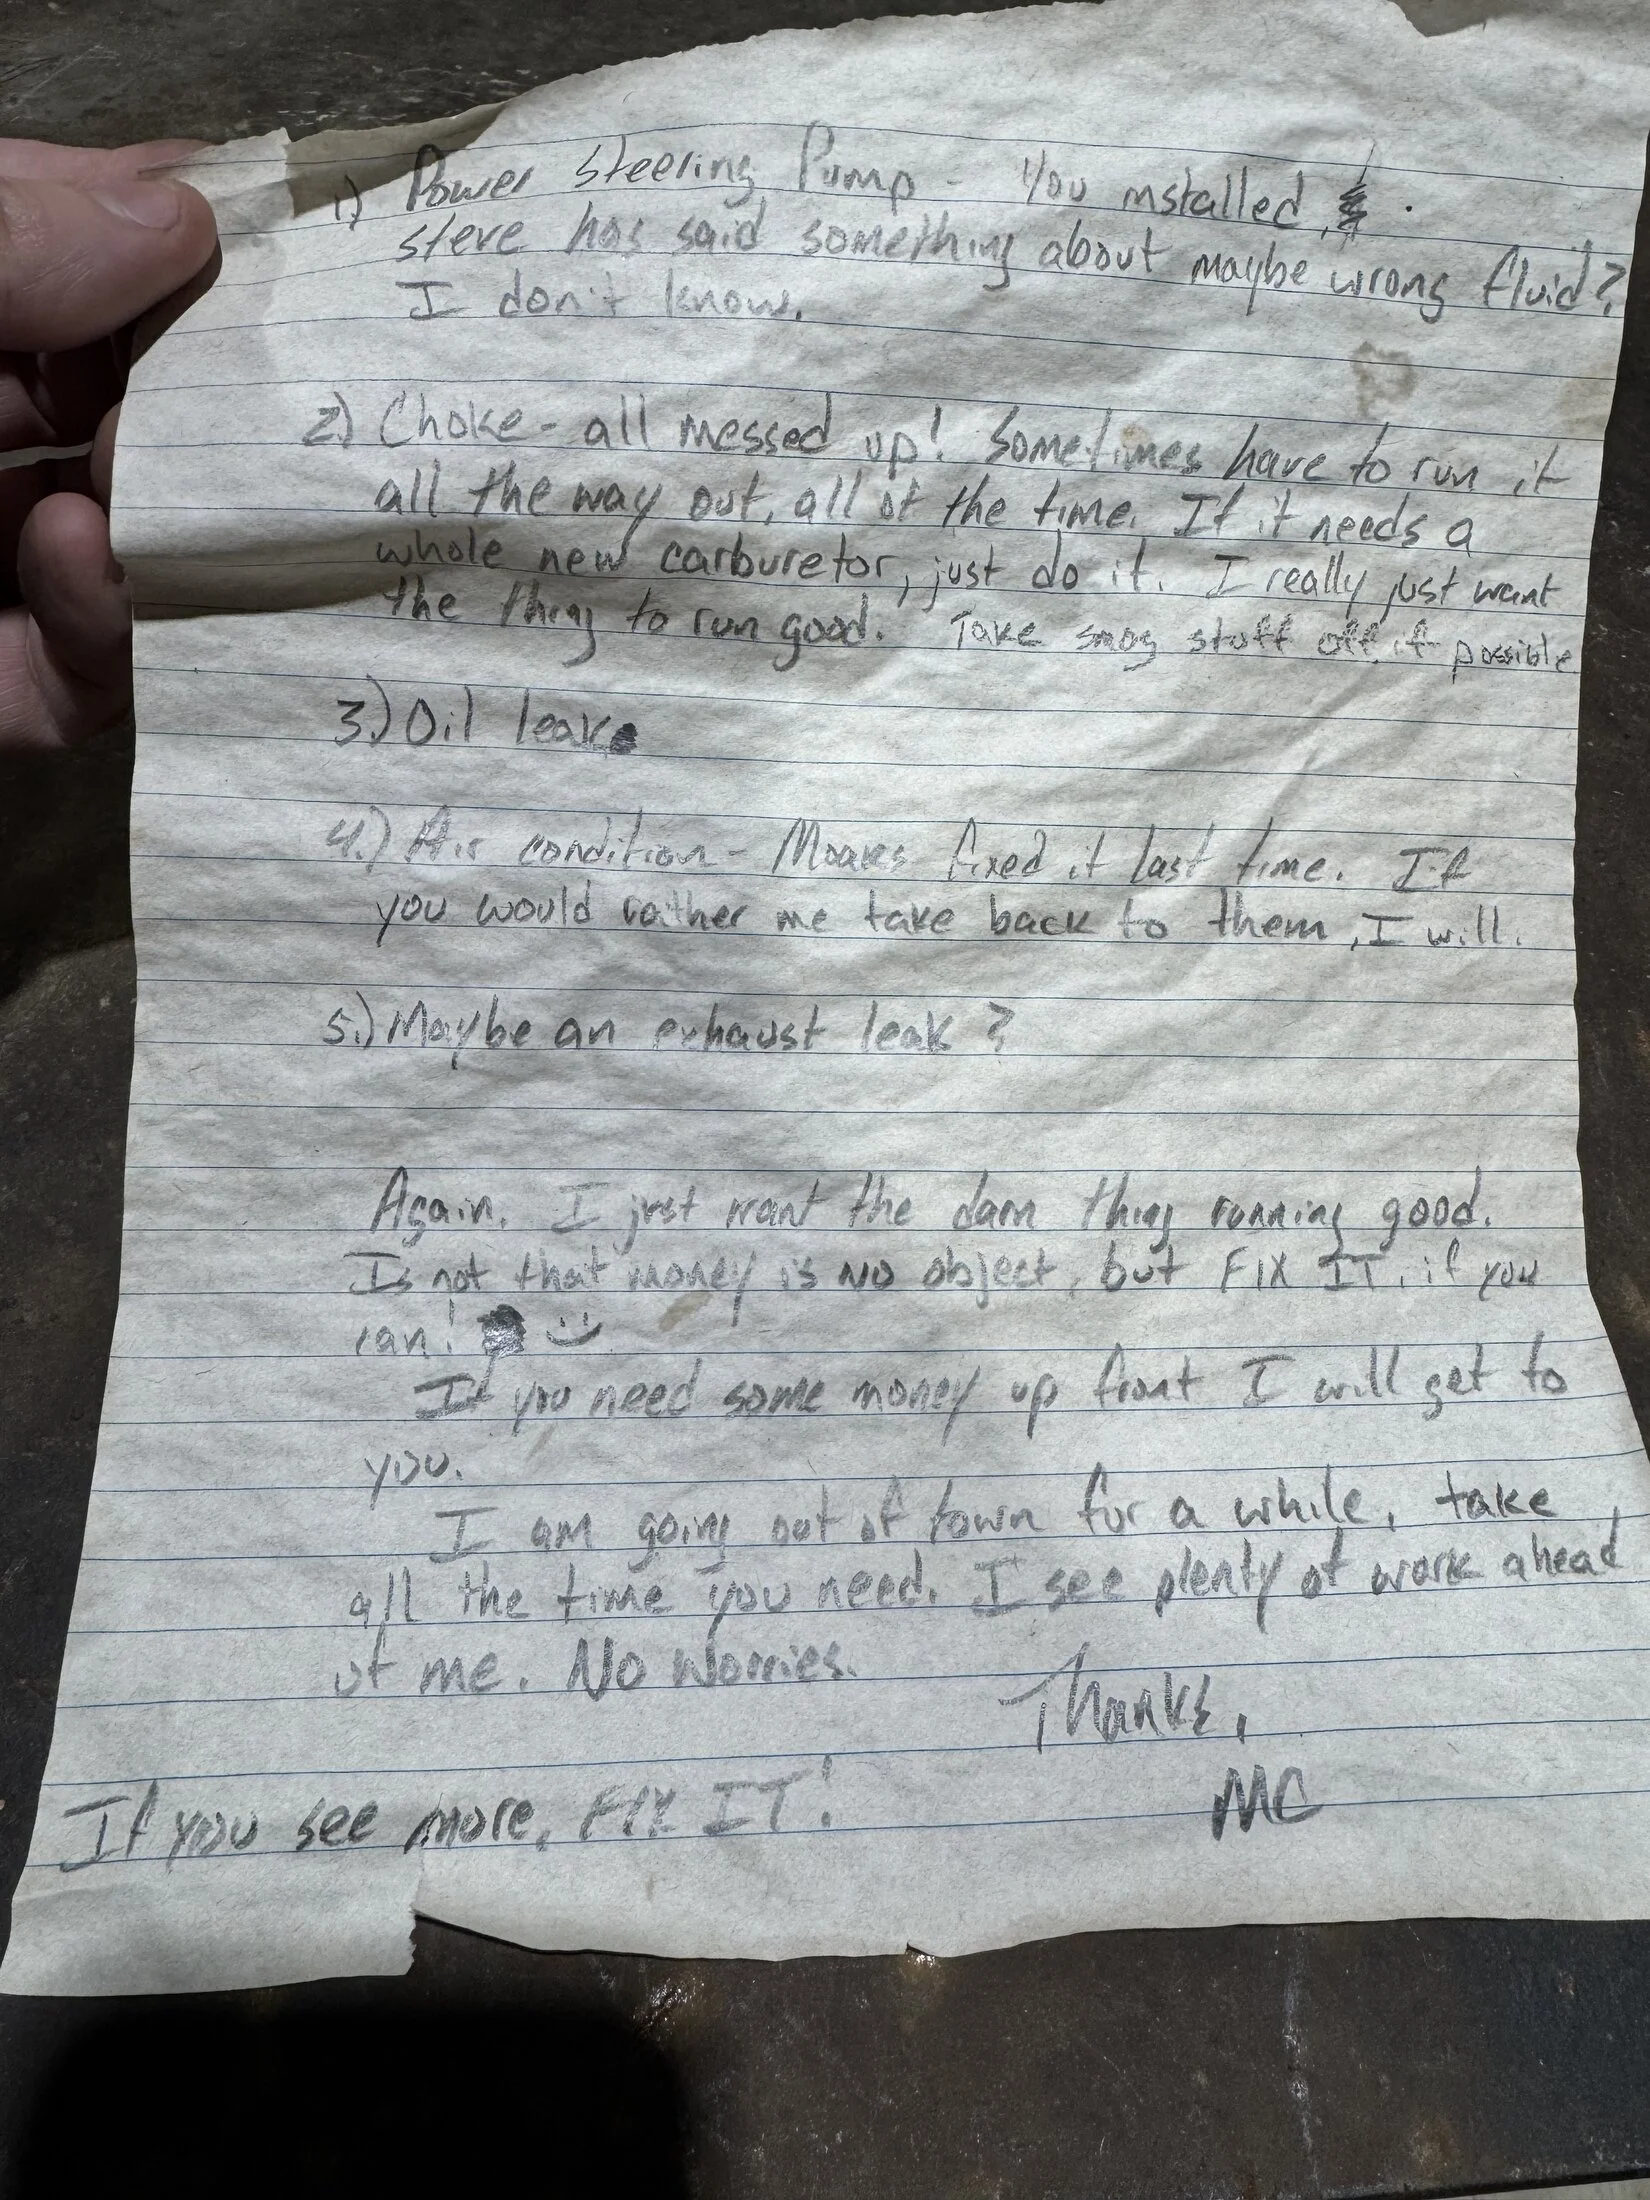 1) Power steering Pump - You installed.
steve has said something about maybe wrong fluid?
I don't know.
2) Choke - all messed up! Sometimes have to run it
all the way out, all of the time. If it needs a
whole new carburetor, just do it. I really just want
the thing to run good. Take smog stuff off if possible
3.) Oil leak
4.) Air condition - Moares fixed it last time. If
you would rather me take back to them, I will.
5.) Maybe an exhaust leak?
Again, I just want the darn thing running good.
Is not that money is no object, but FIX IT, if you
can! :)
If you need some money up front I will get to
you.
I am going out of town for a while, take
all the time you need. I see plenty of work ahead
of me. No Worries.
Thanks,
MC
If you see more, FIX IT!